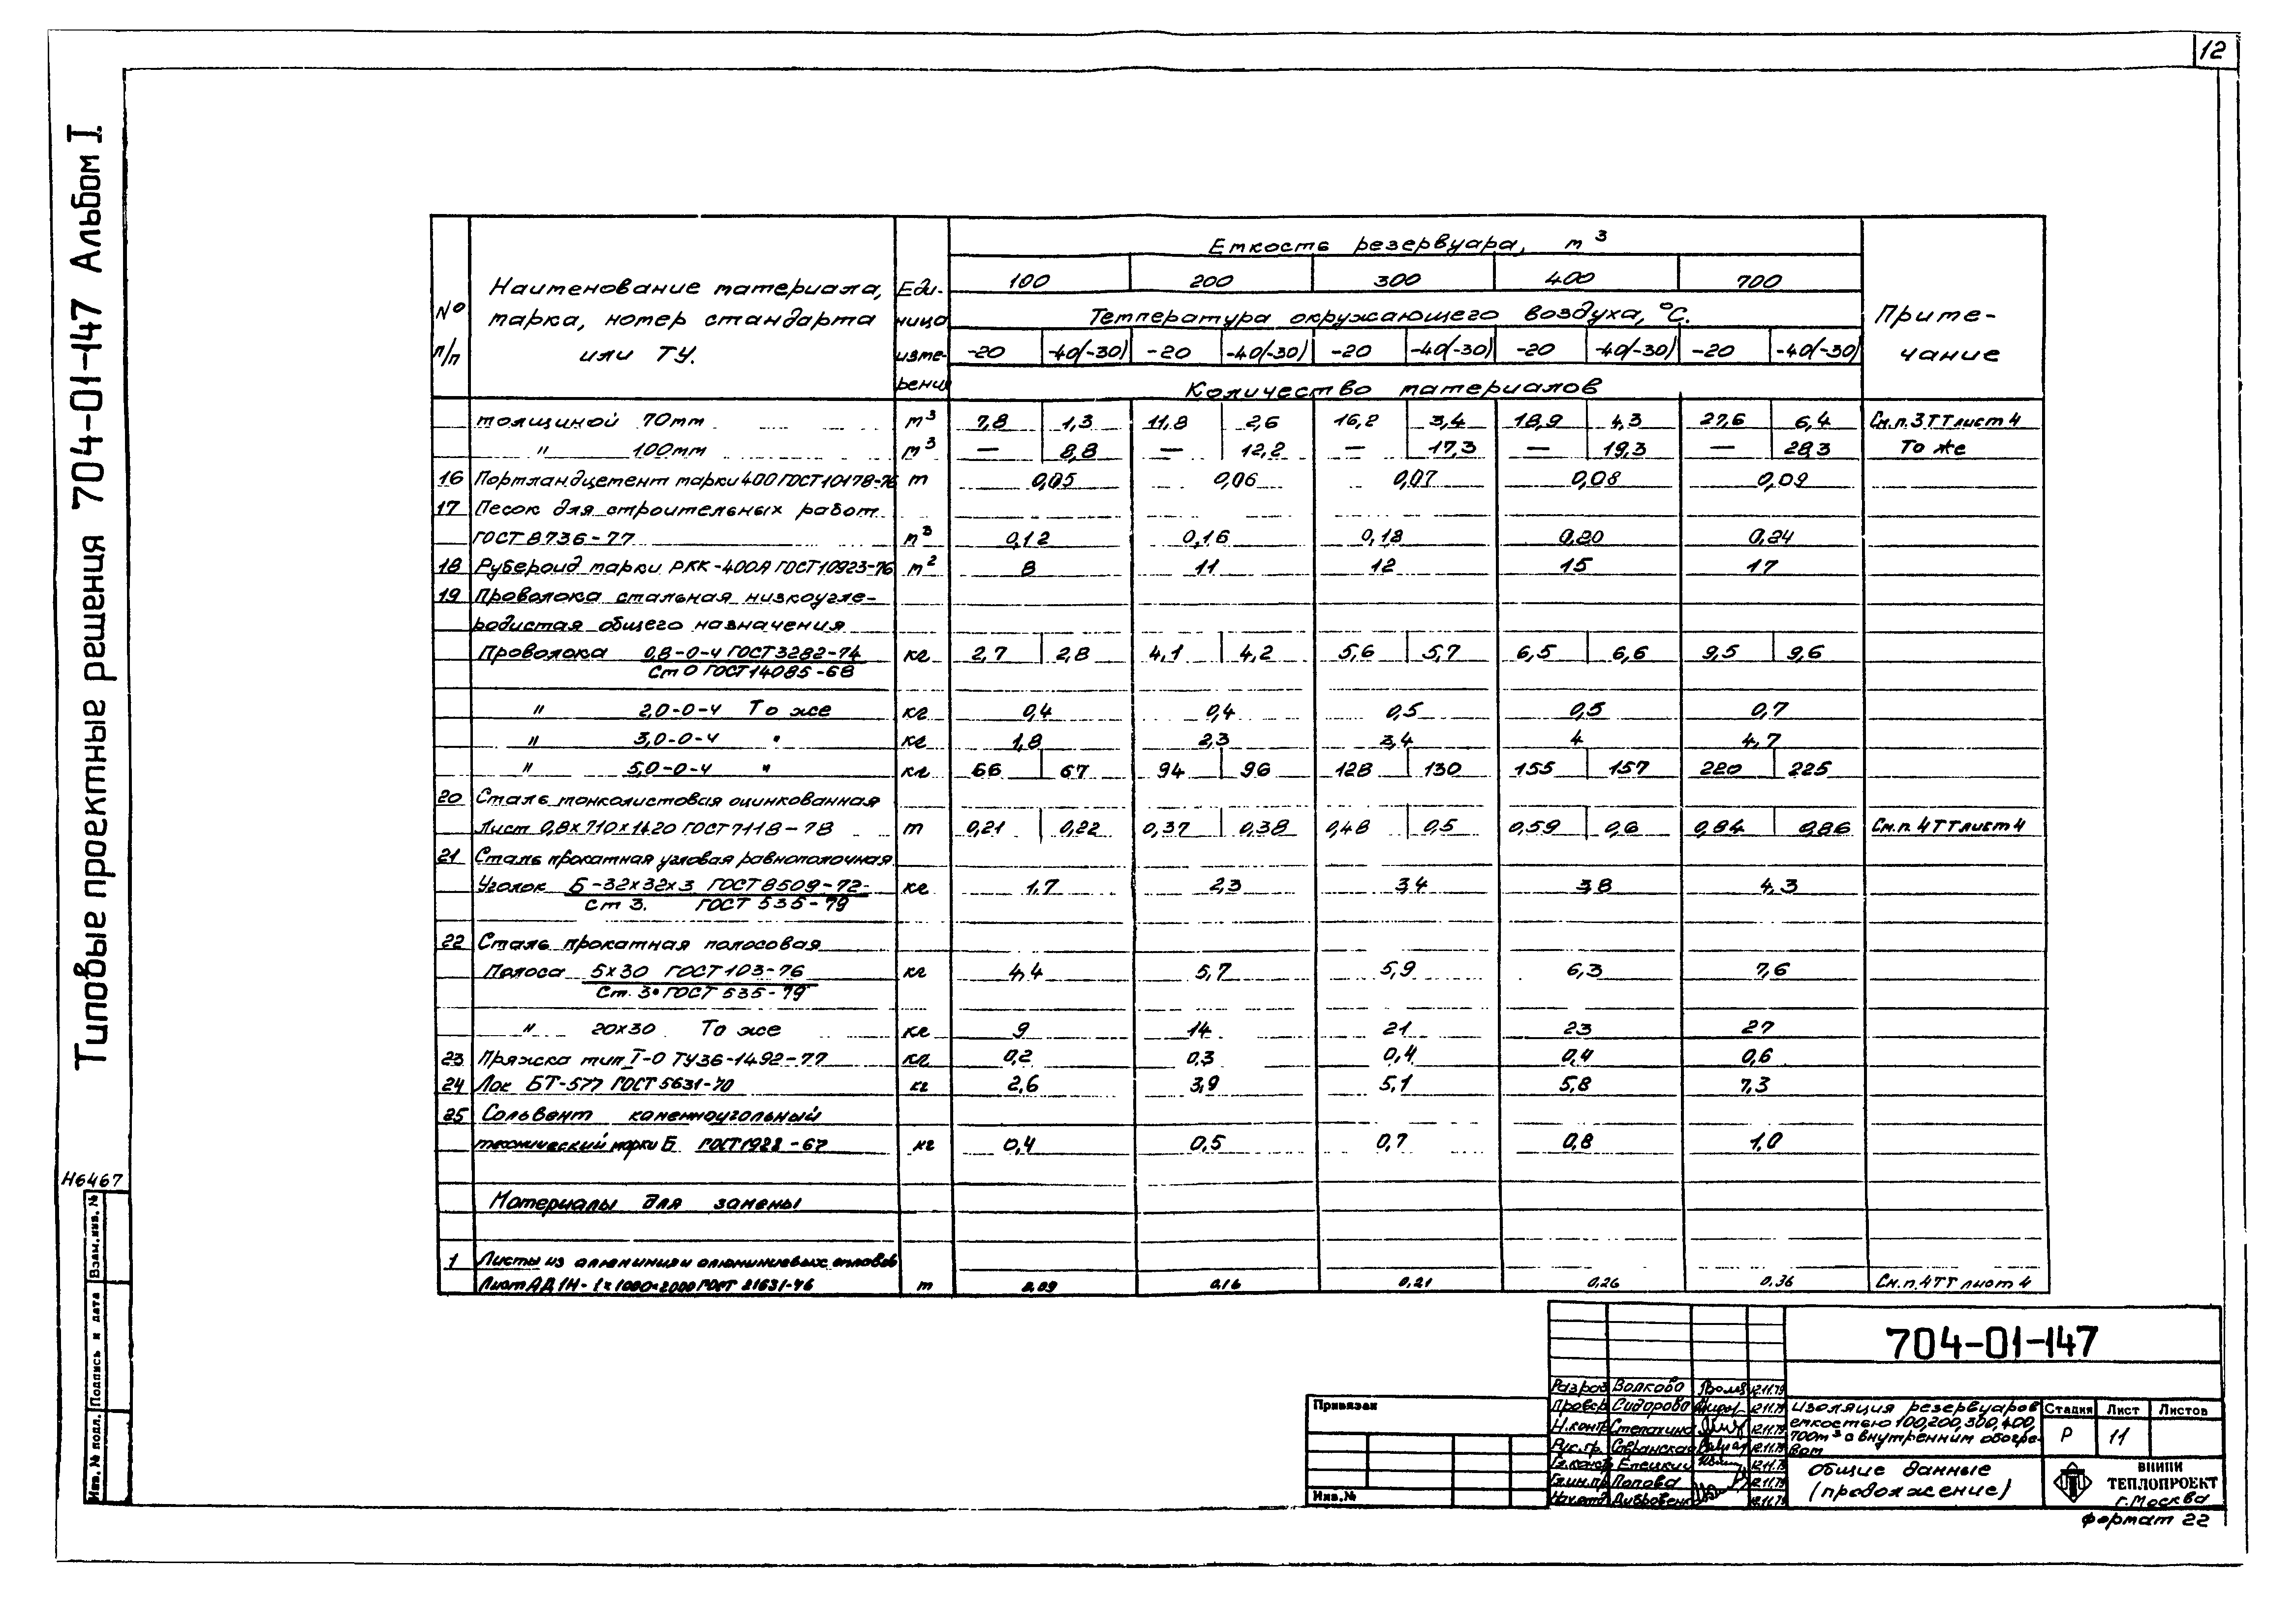 12
Типовые проектные решения 704-01-147 Альбом I.
№ п/п
Наименование материала, марка, номер стандарта или ТУ.
Единица измерения
Емкость резервуара, м³
100 200 300 400 700
Температура окружающего воздуха, °С.
-20 -40(-30) -20 -40(-30) -20 -40(-30) -20 -40(-30) -20 -40(-30)
Количество материалов
Примечание
толщиной 70мм м³ 7,8 1,3 11,8 2,6 16,2 3,4 18,9 4,3 27,6 6,4 См.п.3ТТ лист 4
" 100мм м³ — 8,8 — 12,2 — 17,3 — 19,3 — 28,3 То же
16 Портландцемент марки 400 ГОСТ 10178-76 т 0,05 0,06 0,07 0,08 0,09
17 Песок для строительных работ
ГОСТ 8736-77 м³ 0,12 0,16 0,18 0,20 0,24
18 Рубероид марки РКК-400А ГОСТ 10923-76 м² 8 11 12 15 17
19 Проволока стальная низкоугле-
родистая общего назначения
Проволока 0,8-0-Ч ГОСТ 3282-74 кг 2,7 2,8 4,1 4,2 5,6 5,7 6,5 6,6 9,5 9,6
Ст 0 ГОСТ 14085-68
" 2,0-0-Ч То же кг 0,4 0,4 0,5 0,5 0,7
" 3,0-0-Ч " кг 1,8 2,3 3,4 4 4,7
" 5,0-0-Ч " кг 66 67 94 96 128 130 155 157 220 225
20 Сталь тонколистовая оцинкованная
Лист 0,8×710×1420 ГОСТ 7118-78 т 0,21 0,22 0,37 0,38 0,48 0,5 0,59 0,6 0,84 0,86 См.п.4ТТ лист 4
21 Сталь прокатная угловая равнополочная
Уголок Б-32×32×3 ГОСТ 8509-72 кг 1,7 2,3 3,4 3,8 4,3
Ст 3. ГОСТ 535-79
22 Сталь прокатная полосовая
Полоса 5×30 ГОСТ 103-76 кг 4,4 5,7 5,9 6,3 7,6
Ст. 3 ГОСТ 535-79
" 20×30 То же кг 9 14 21 23 27
23 Пряжка тип I-0 ТУ36-1492-77 кг 0,2 0,3 0,4 0,4 0,6
24 Лак БТ-577 ГОСТ 5631-70 кг 2,6 3,9 5,1 5,8 7,3
25 Сольвент каменноугольный
технический марки Б ГОСТ 1928-67 кг 0,4 0,5 0,7 0,8 1,0
Материалы для замены
1 Листы из алюминия и алюминиевых сплавов
Лист АД1Н-1×1000×2000 ГОСТ 21631-76 т 0,09 0,16 0,21 0,26 0,36 См.п.4ТТ лист 4
Н6467
Взам.инв. №
Подпись и дата
Инв.№ подл.
Привязан
Инв.№
704-01-147
Разраб Волкова 12.11.79
Провер Сидорова 12.11.79
Н.контр Степанина 12.11.79
Рук.гр. 12.11.79
Гл.констр Елецкий 12.11.79
Гл.ин.пр Попова 12.11.79
Нач.отд 12.11.79
Изоляция резервуаров
емкостью 100,200,300,400,
700м³ с внутренним обогре-
вом
Стадия Лист Листов
Р 11
Общие данные
(продолжение)
ВНИПИ
ТЕПЛОПРОЕКТ
г.Москва
Формат 22